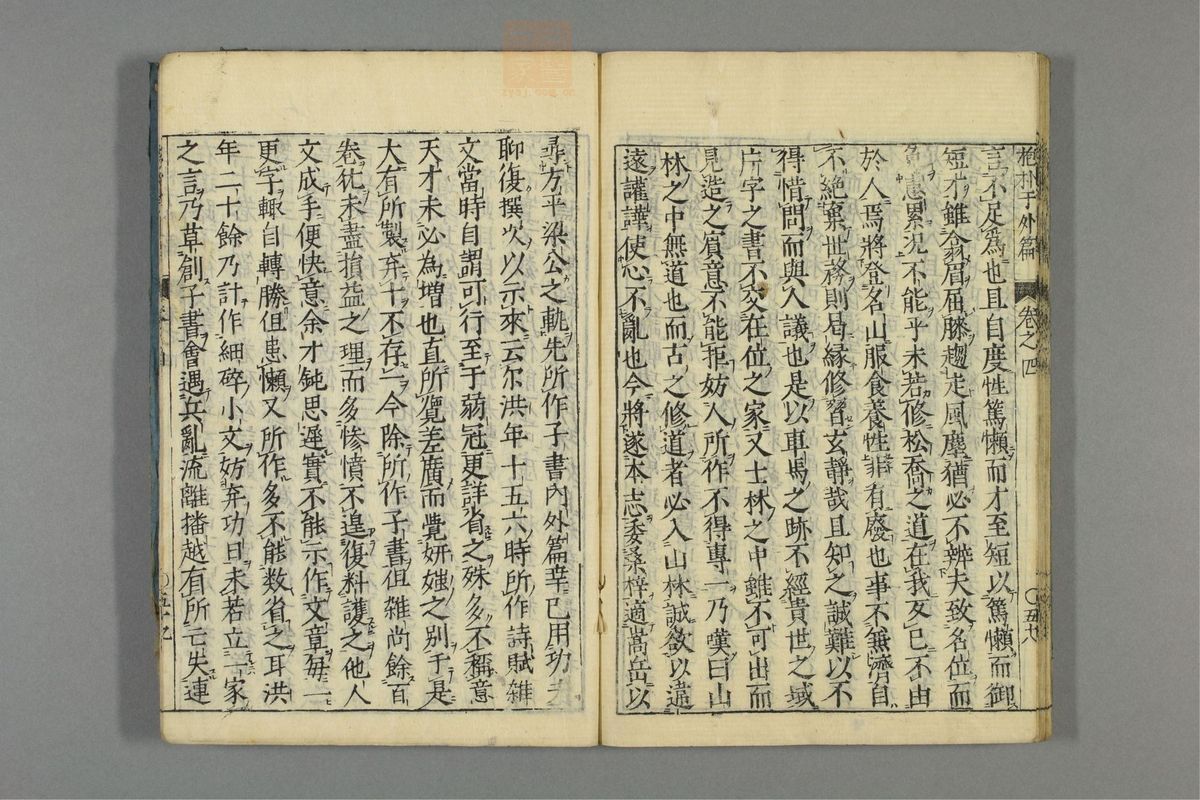 抱朴子外篇 卷之四 〇五十八
言不足爲也且自度性篤懶而才至短以篤懶而御
短才雖翕肩屈膝趨走風塵猶必不辨大致名位而
免患累況不能乎未若修松喬之道在我而已不由
於人焉將登名山服食養性非有廢也事不無濟自
不絕棄世務則曷緣修習玄靜哉且知之誠難以不
得惜問而與人議也是以車馬之跡不經貴世之域
片字之書不交在位之家又士林之中雖不可出而
見造之賓意不能拒妨人所作不得專一乃嘆曰山
林之中無道也而古之修道者必入山林誠欲以違
遠讙譁使心不亂也今將遂本志委桑梓適嵩岳以
尋方平梁公之軌先所作子書內外篇幸已用功夫
聊復撰次以示來云尔洪年十五六時所作詩賦雜
文當時自謂可行至于弱冠更詳省之殊多不稱意
天才未必為增也直所覽差廣而覺妍媸之別于是
大有所製弃十不存一今除所作子書但雜尚餘百
卷犹未盡損益之理而多慘憤不遑復料護之他人
文成手便快意余才鈍思遲實不能示作文章每一
更字輙自轉勝但患懶又所作多不能数省之耳洪
年二十餘乃計作細碎小文妨弃功日未若立一家
之言乃草創子書會遇兵亂流離播越有所亡失連